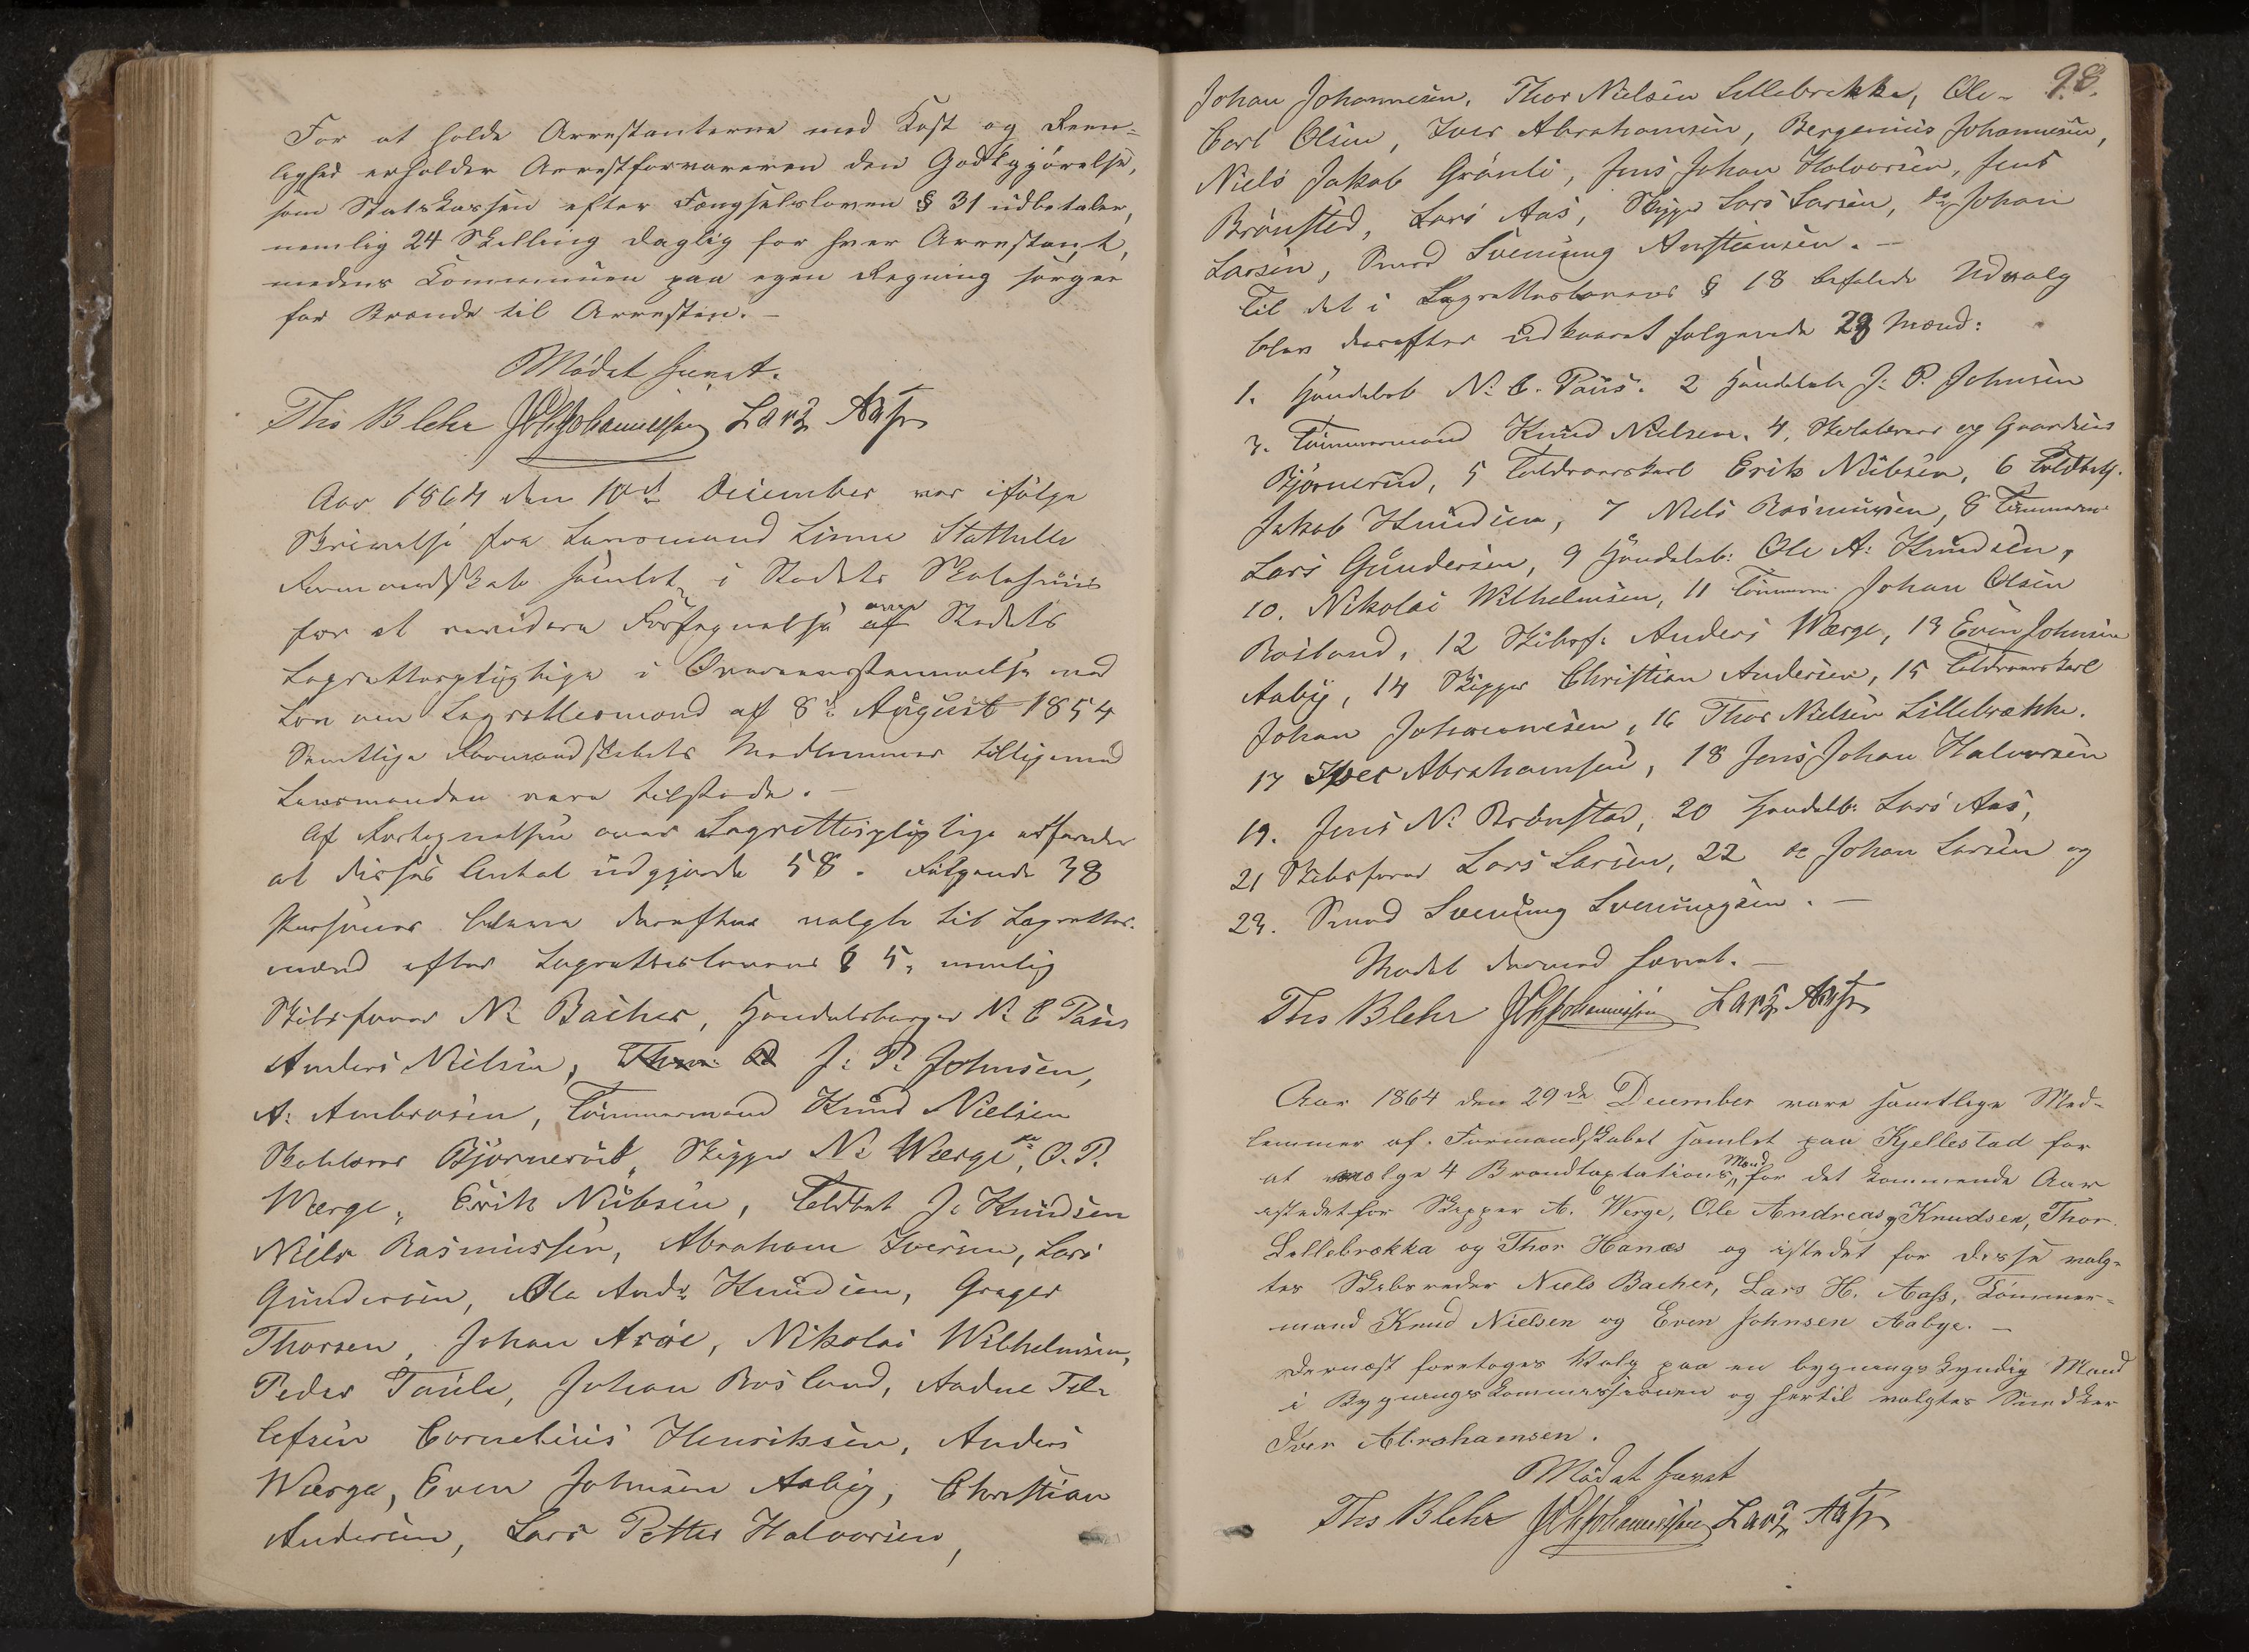 For at holde Arrestanterne med Kost og Reen-
lighed erholder Arrestforvareren den Godtgjørelse,
som Statskassen efter Fængselsloven § 31 udbetaler,
nemlig 24 Skilling daglig for hver Arrestant,
medens Communen paa egen Regning sørger
for Brænde til Arresten. —
Mødet hævet.
Ths Blehr Johannessen Lars Aas
Aar 1864 den 10de December var ifølge
Skrivelse fra Lensmand Linna Stathelle
Formandskab samlet i Stedets Skolehuus
for at revidere Fortegnelse af over Stedets
Lagrettespligtige i Overeensstemmelse med
Lov om Lagrettesmænd af 8de August 1854
Samtlige Formandskabets Medlemmer tilligemed
Lensmanden vare tilstede. —
Af Fortegnelsen over Lagrettespligtige erfaredes
at disses Antal udgjorde 58. Følgende 38
Personer bleve derefter valgte til Lagrettes-
mænd efter Lagretteslovens § 5, nemlig
Skibsfører N. Bacher, Handelsborger N. C. Paus
Anders Nielsen, J. P. Johnsen,
A. Ambrosen, Tømmermand Knud Nielsen
Skolelærer Bjørnerud, Skipper N. Wærge, do O. P.
Wærge, Erik Nubsen, Toldbet J. Knudsen
Niels Rasmussen, Abraham Iversen, Lars
Gundersen, Ole Andr. Knudsen, Greger
Thorsen, Johan Arøe, Nikolai Wilhelmsen,
Peder Taule, Johan Rosland, Aadne Tel-
lefsen Cornelius Henriksen, Anders
Wærge, Even Johnsen Aaby, Christian
Andersen, Lars Petter Halvorsen,
98.
Johan Johannesen, Thor Nielsen Lillebrekke, Ole-
Carl Olsen, Iver Abrahamsen, Bergenius Johannesen,
Niels Jakob Grønli, Jens Johan Halvorsen, Jens
Brønsted, Lars Aas, Skipper Lars Larsen, do Johan
Larsen, Smed Svenung
Til det i Lagretteslovens § 18 befalede Udvalg
blev derefter udkaaret følgende 23 Mænd:
1. Handelsb N. C. Paus. 2 Handelsb J. P. Johnsen
3. Tømmermand Knud Nielsen. 4. Skolelærer og Gaardeier
Bjørnerud, 5 Toldroerskarl Erik Nubsen, 6 Toldbetj.
Jakob Knudsen, 7 Niels Rasmussen, 8 Tømmerm.
Lars Gundersen, 9 Handelsb: Ole A. Knudsen,
10. Nikolai Wilhelmsen, 11 Tømmerm. Johan Olsen
Rosland, 12 Skibsf. Anders Wærge, 13 Even Johnsen
Aaby, 14 Skipper Christian Andersen, 15 Toldroerskarl
Johan Johannesen, 16 Thor Nielsen Lillebrække.
17 Iver Abrahamsen, 18 Jens Johan Halvorsen
19. Jens N. Brønsted, 20 Handelb. Lars Aas,
21 Skibsfører Lars Larsen, 22 do Johan Larsen og
23. Smed Svenung Svenungsen. —
Mødet dermed hævet. —
Ths Blehr Johannessen Lars Aas
Aar 1864 den 29de December vare samtlige Med-
lemmer af Formandskabet samlet paa Kjellestad for
at vælge 4 Brandtaxtations Mænd for det kommende Aar
istedetfor Skipper A. Werge, Ole Andreas Knudsen, Thor
Lillebrække og Thor Hanæs og istedet for disse valg-
tes Skibsreder Niels Bacher, Lars H. Aass, Tømmer-
mand Knud Nielsen og Even Johnsen Aabye. —
Dernæst foretoges Valg paa en bygningskyndig Mand
i Bygningskommissionen og hertil valgtes Snedker
Iver Abrahamsen.
Mødet hævet
Ths Blehr Johannessen Lars Aas